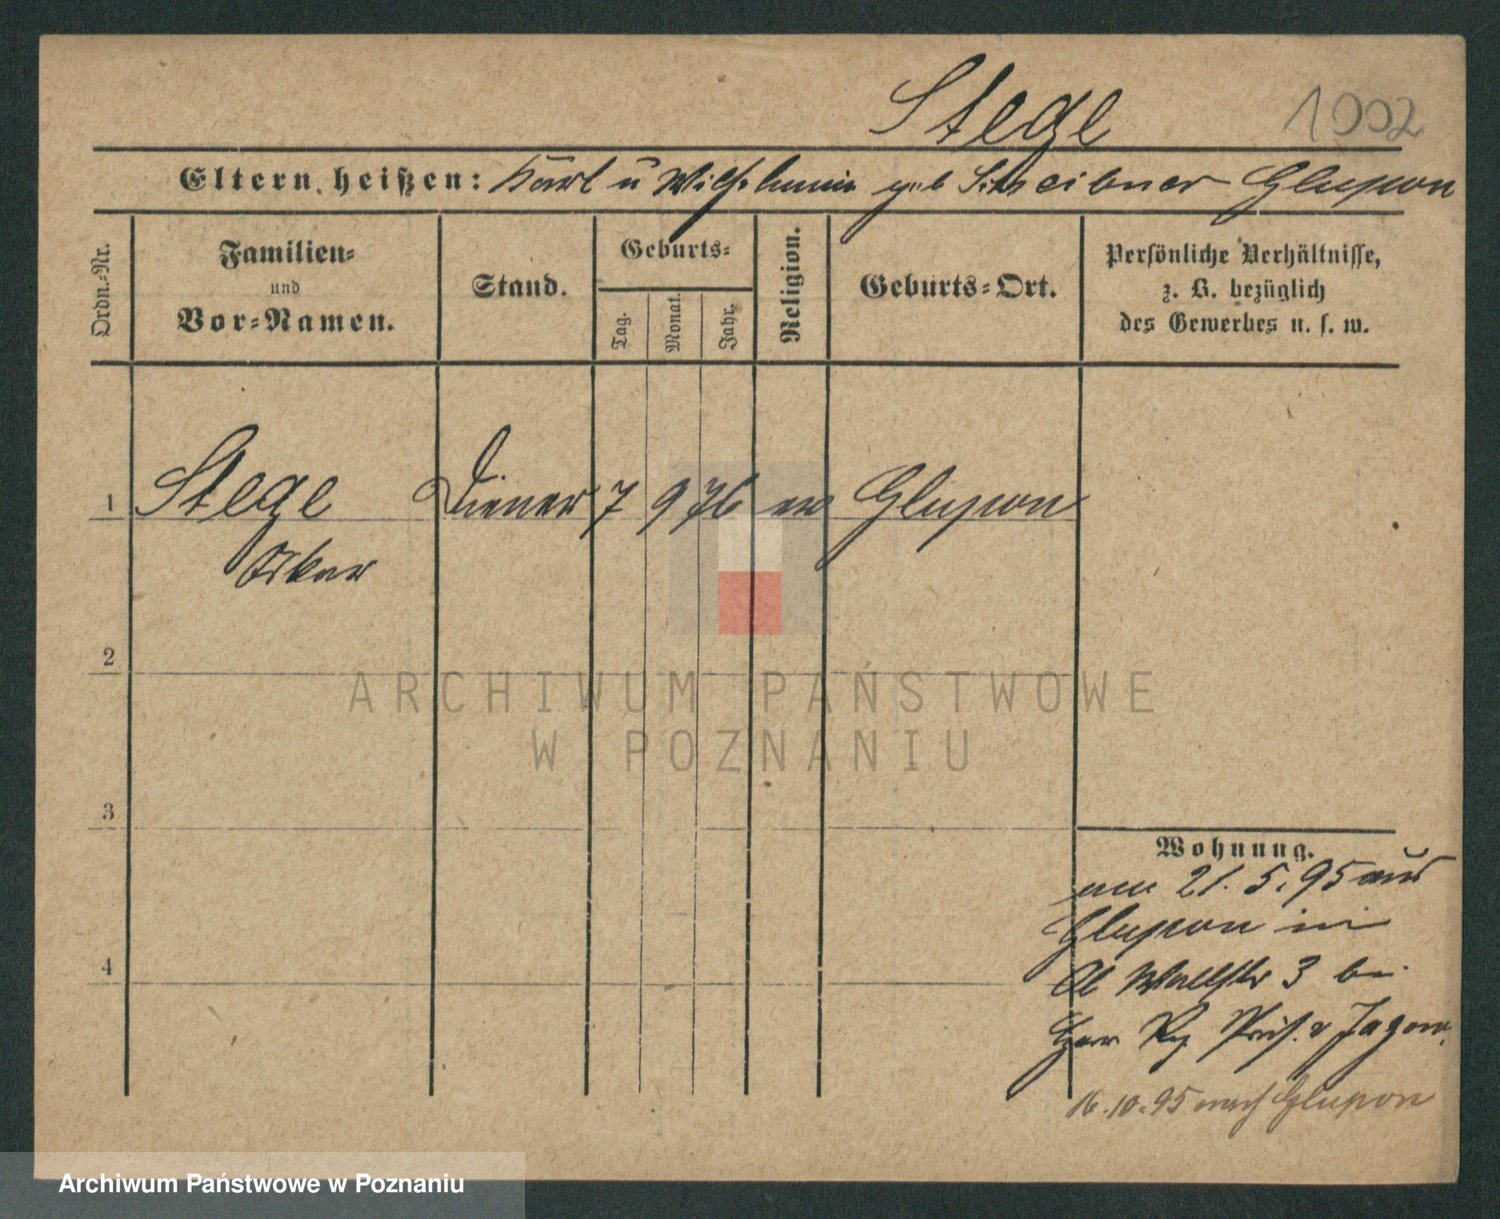 Stege 1002
Eltern heißen: Karl u Wilhelmine geb Schreibner Glupon
Ordn.-Nr.
Familien-
und
Vor-Namen.
Stand.
Geburts-
Tag.
Monat.
Jahr.
Religion.
Geburts-Ort.
Persönliche Verhältnisse,
z. B. bezüglich
des Gewerbes u. s. w.
1 Stege Diener 7 9 76 ev Glupon
Oskar
2
3
4
Wohnung.
am 21. 5. 95 aus
Glupon in
Ob Wallstr 3 bei
Herr Rg Präs. v Jagow.
16.10.95 nach Glupon
ARCHIWUM PAŃSTWOWE
W POZNANIU
Archiwum Państwowe w Poznaniu